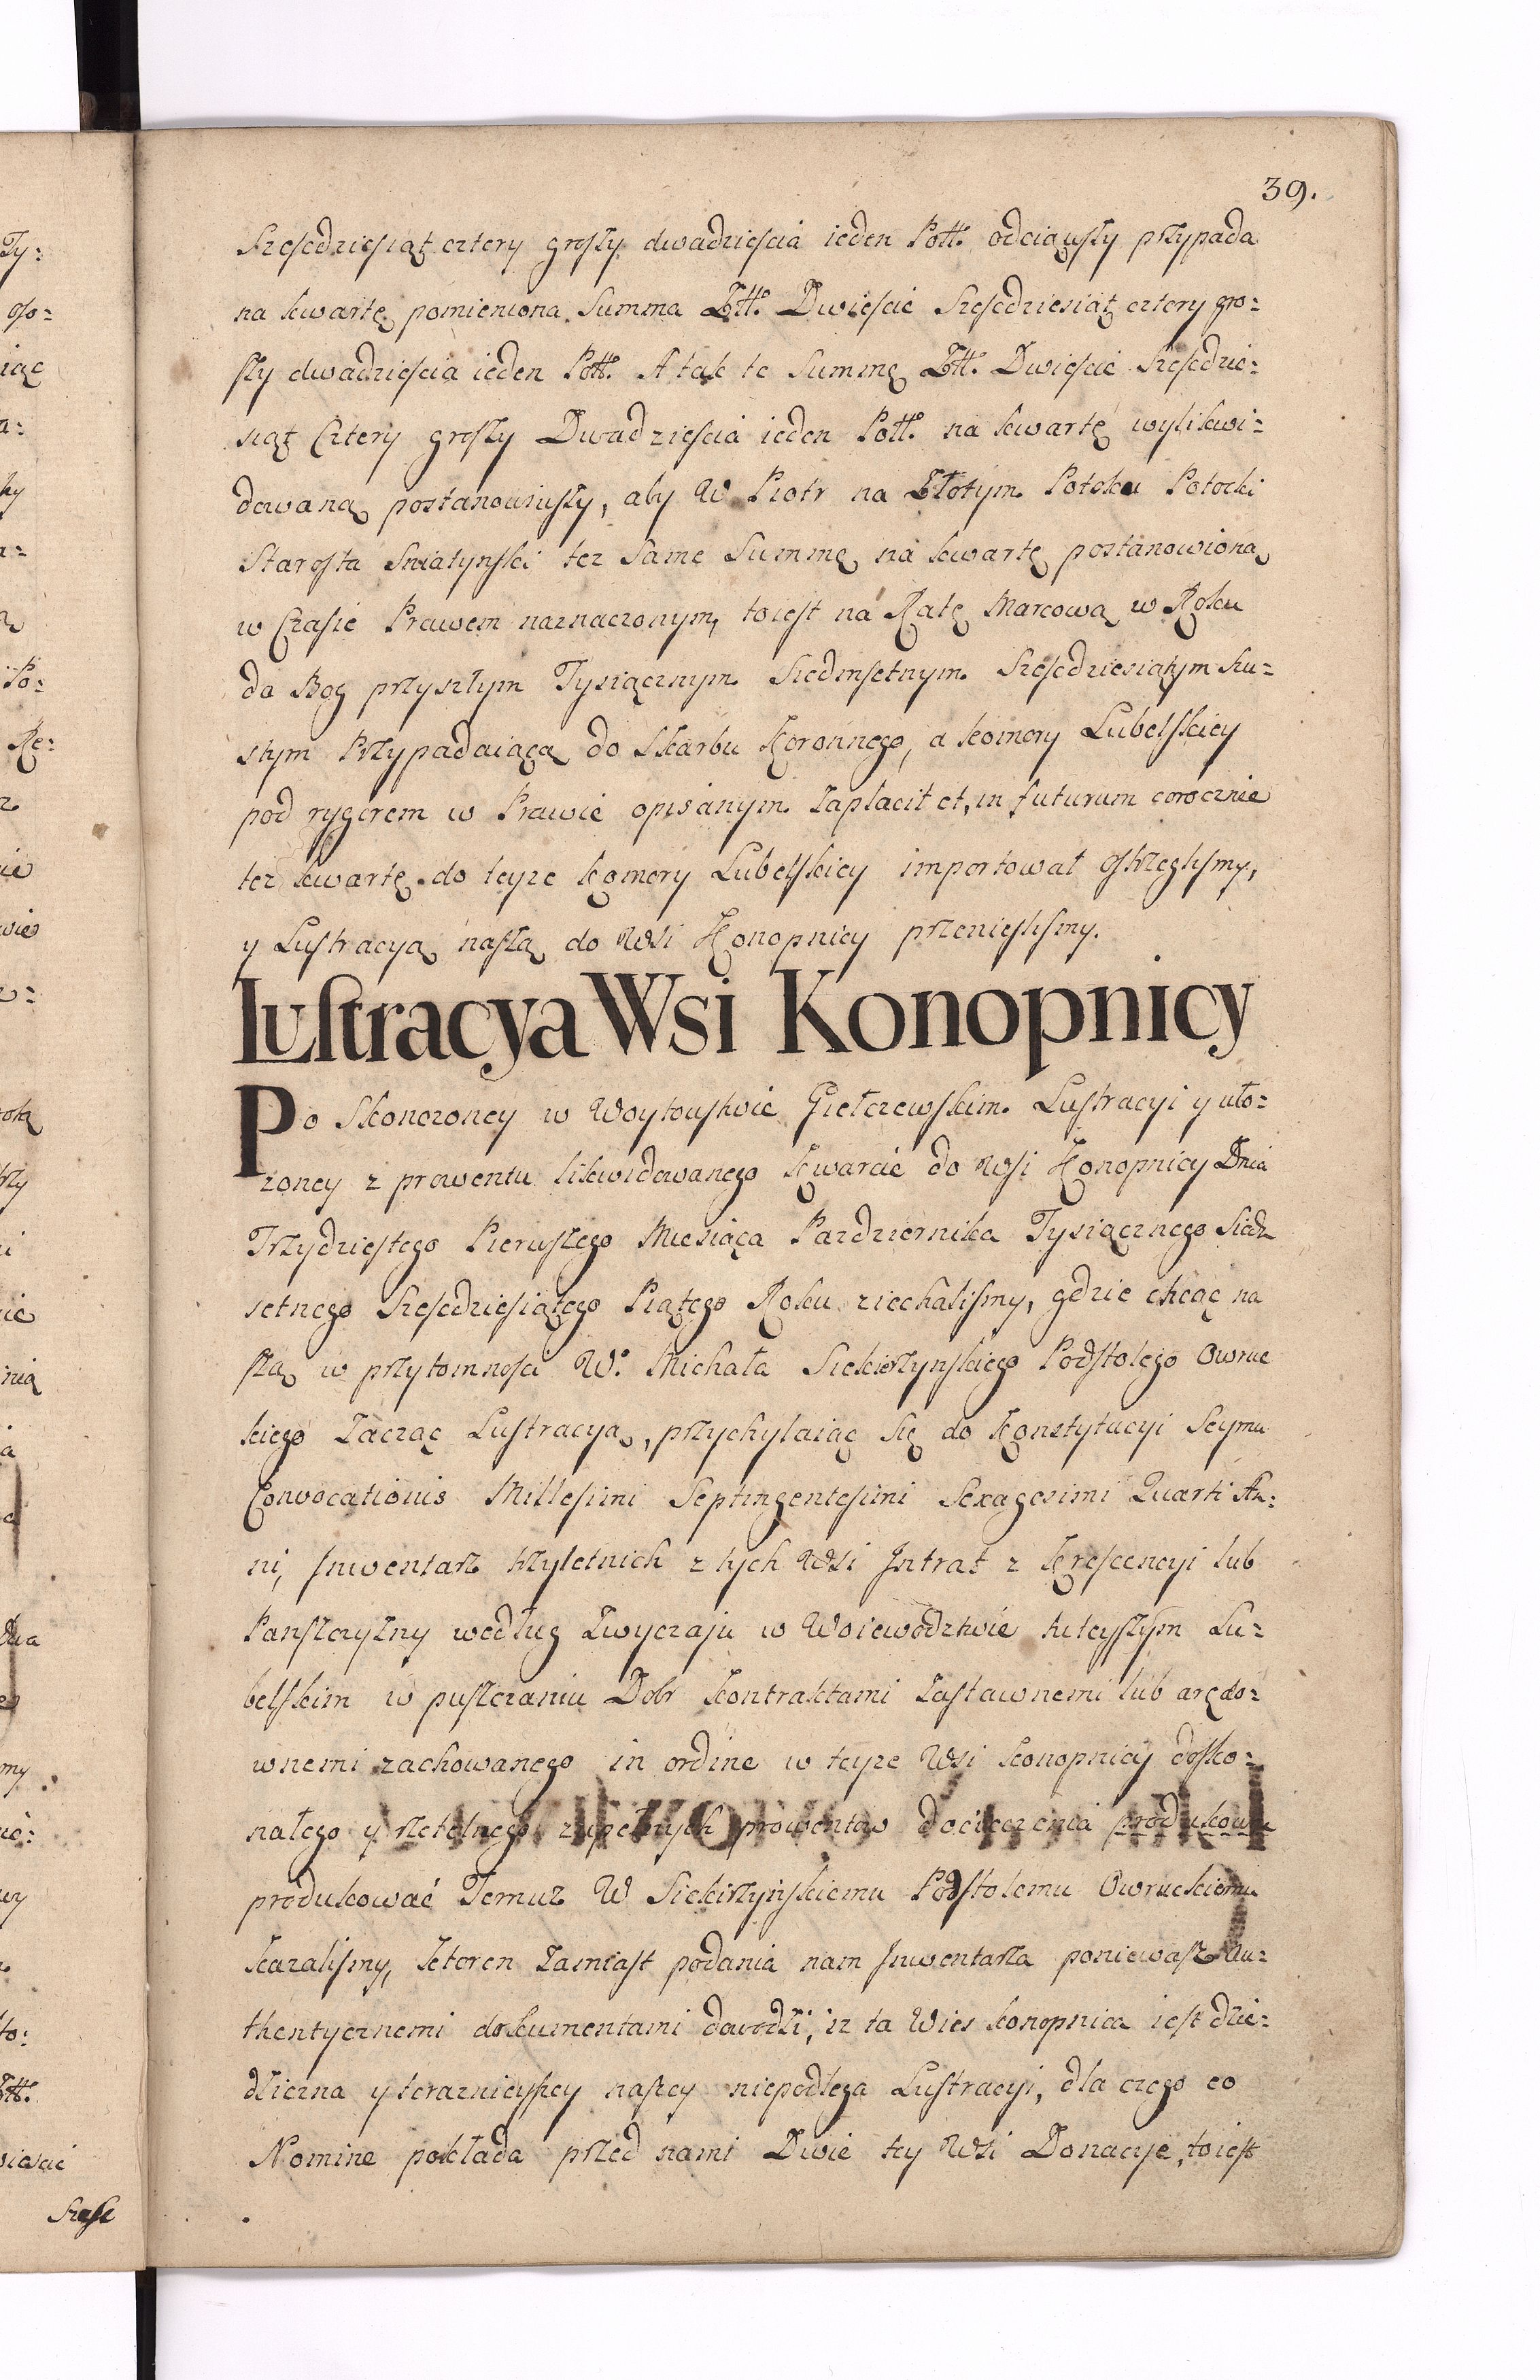 39.
Szescdziesiąt cztery groszy dwadziescia ieden Poll. odciąwszy przypada
na kwartę pomieniona Summa Złł. Dwiescie Szescdziesiąt cztery gro=
szy dwadziescia ieden Poll. A tak te Summę Złł. Dwiescie Szescdzie=
siąt Cztery groszy Dwadziescia ieden Poll. na kwartę wylikwi=
dowaną postanowiwszy, aby W Piotr na Złotym Potoku Potocki
Starosta Sniatynski tez Samę Summę na kwartę postanowioną
w Czasie Prawem naznaczonym, toiest na Ratę Marcową w Roku
da Bog przyszłym Tysiącznym Siedmsetnym Szescdziesiątym Szu=
stym Przypadaiącą do Skarbu Koronnego, a komory Lubelskiey
pod rygorem w Prawie opisanym zapłacił et, in futurum corocznie
tez kwartę do teyze komory Lubelskiey importował ostrzeglismy,
y Lustracyą naszą do Wsi Konopnicy przenieslismy.
Lustracya Wsi Konopnicy
Po Skonczoney w Woytowstwie Giełczewskim Lustracyi y uło=
zoney z prowentu likwidowanego kwarcie do Wsi Konopnicy Dnia
Trzydziestego Pierwszego Miesiąca Pazdziernika Tysiącznego Siedm
setnego Szescdziesiątego Piątego Roku ziechalismy, gdzie chcąc na
szą w przytomnosci W.o Michała Siekierzynskiego Podstolego Owruc
kiego Zacząc Lustracyą, przychylaiąc się do Konstytucyi Seymu
Convocationis Millesimi Septingentesimi Sexagesimi Quarti An=
ni, Inwentarz trzyletnich z tych Wsi Intrat z Krescencyi lub
Panszczyzny według Zwyczaju w Woiewodztwie tuteyszym Lu=
belskim w puszczaniu Dobr kontraktami Zastawnemi lub arędo=
wnemi zachowanego in ordine w teyze Wsi konopnicy dosko=
nałego y rzetelnego zupełnych prowentow docieczenia produkowa
produkować Temuz W Siekirzyńskiemu Podstolemu Owruckiemu
kazalismy, ktoren Zamiast podania nam Inwentarza poniewasz Au=
thentycznemi dokumentami dowodzi, iz ta Wies konopnica iest dzie=
dziczna y teraznieyszey naszey niepodlega Lustracyi, dla czego eo
Nomine pokłada przed nami Dwie tey Wsi Donacye, toiest